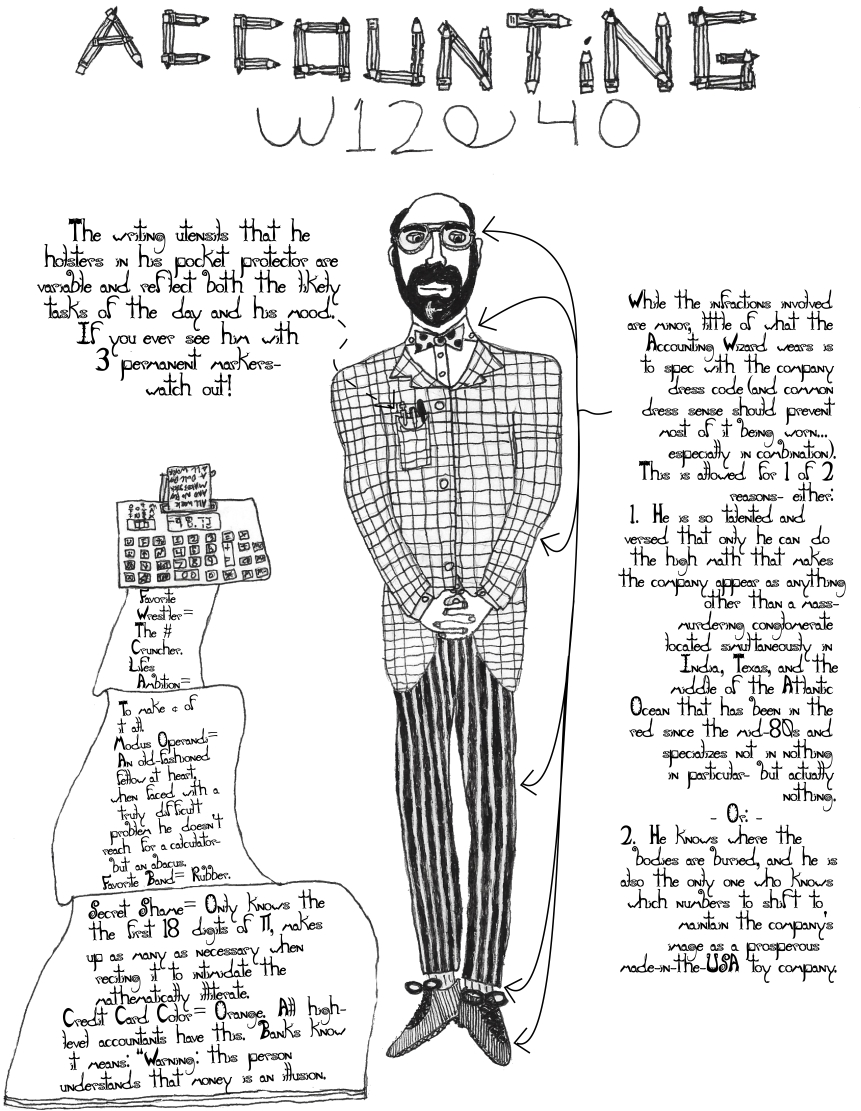 ACCOUNTING
W12@40
The writing utensils that he
holsters in his pocket protector are
variable and reflect both the likely
tasks of the day and his mood.
If you ever see him with
3 permanent markers-
watch out!
While the infractions involved
are minor, little of what the
Accounting Wizard wears is
to spec with the company
dress code (and common
dress sense should prevent
most of it being worn...
especially in combination).
This is allowed for 1 of 2
reasons- either:
1. He is so talented and
versed that only he can do
the high math that makes
the company appear as anything
other than a mass-
murdering conglomerate
located simultaneously in
India, Texas, and the
middle of the Atlantic
Ocean that has been in the
red since the mid-80s and
specializes not in nothing
in particular- but actually
nothing.
- Or: -
2. He knows where the
bodies are buried, and he is
also the only one who knows
which numbers to shift to
maintain the company's
image as a prosperous
made-in-the-USA toy company.
ALL WORK
AND NO PLAY
MAKES JACK
DULL BOY
ALL WORK
Favorite
Wrestler=
The #
Cruncher.
Lifes
Ambition=
To make ¢ of
it all.
Modus Operandi=
An old-fashioned
fellow at heart,
when faced with a
truly difficult
problem he doesn't
reach for a calculator-
but an abacus.
Favorite Band= Rubber.
Secret Shame= Only knows the
the first 18 digits of π, makes
up as many as necessary when
reciting it to intimidate the
mathematically illiterate.
Credit Card Color= Orange. All high-
level accountants have this. Banks know
it means: "Warning: this person
understands that money is an illusion.